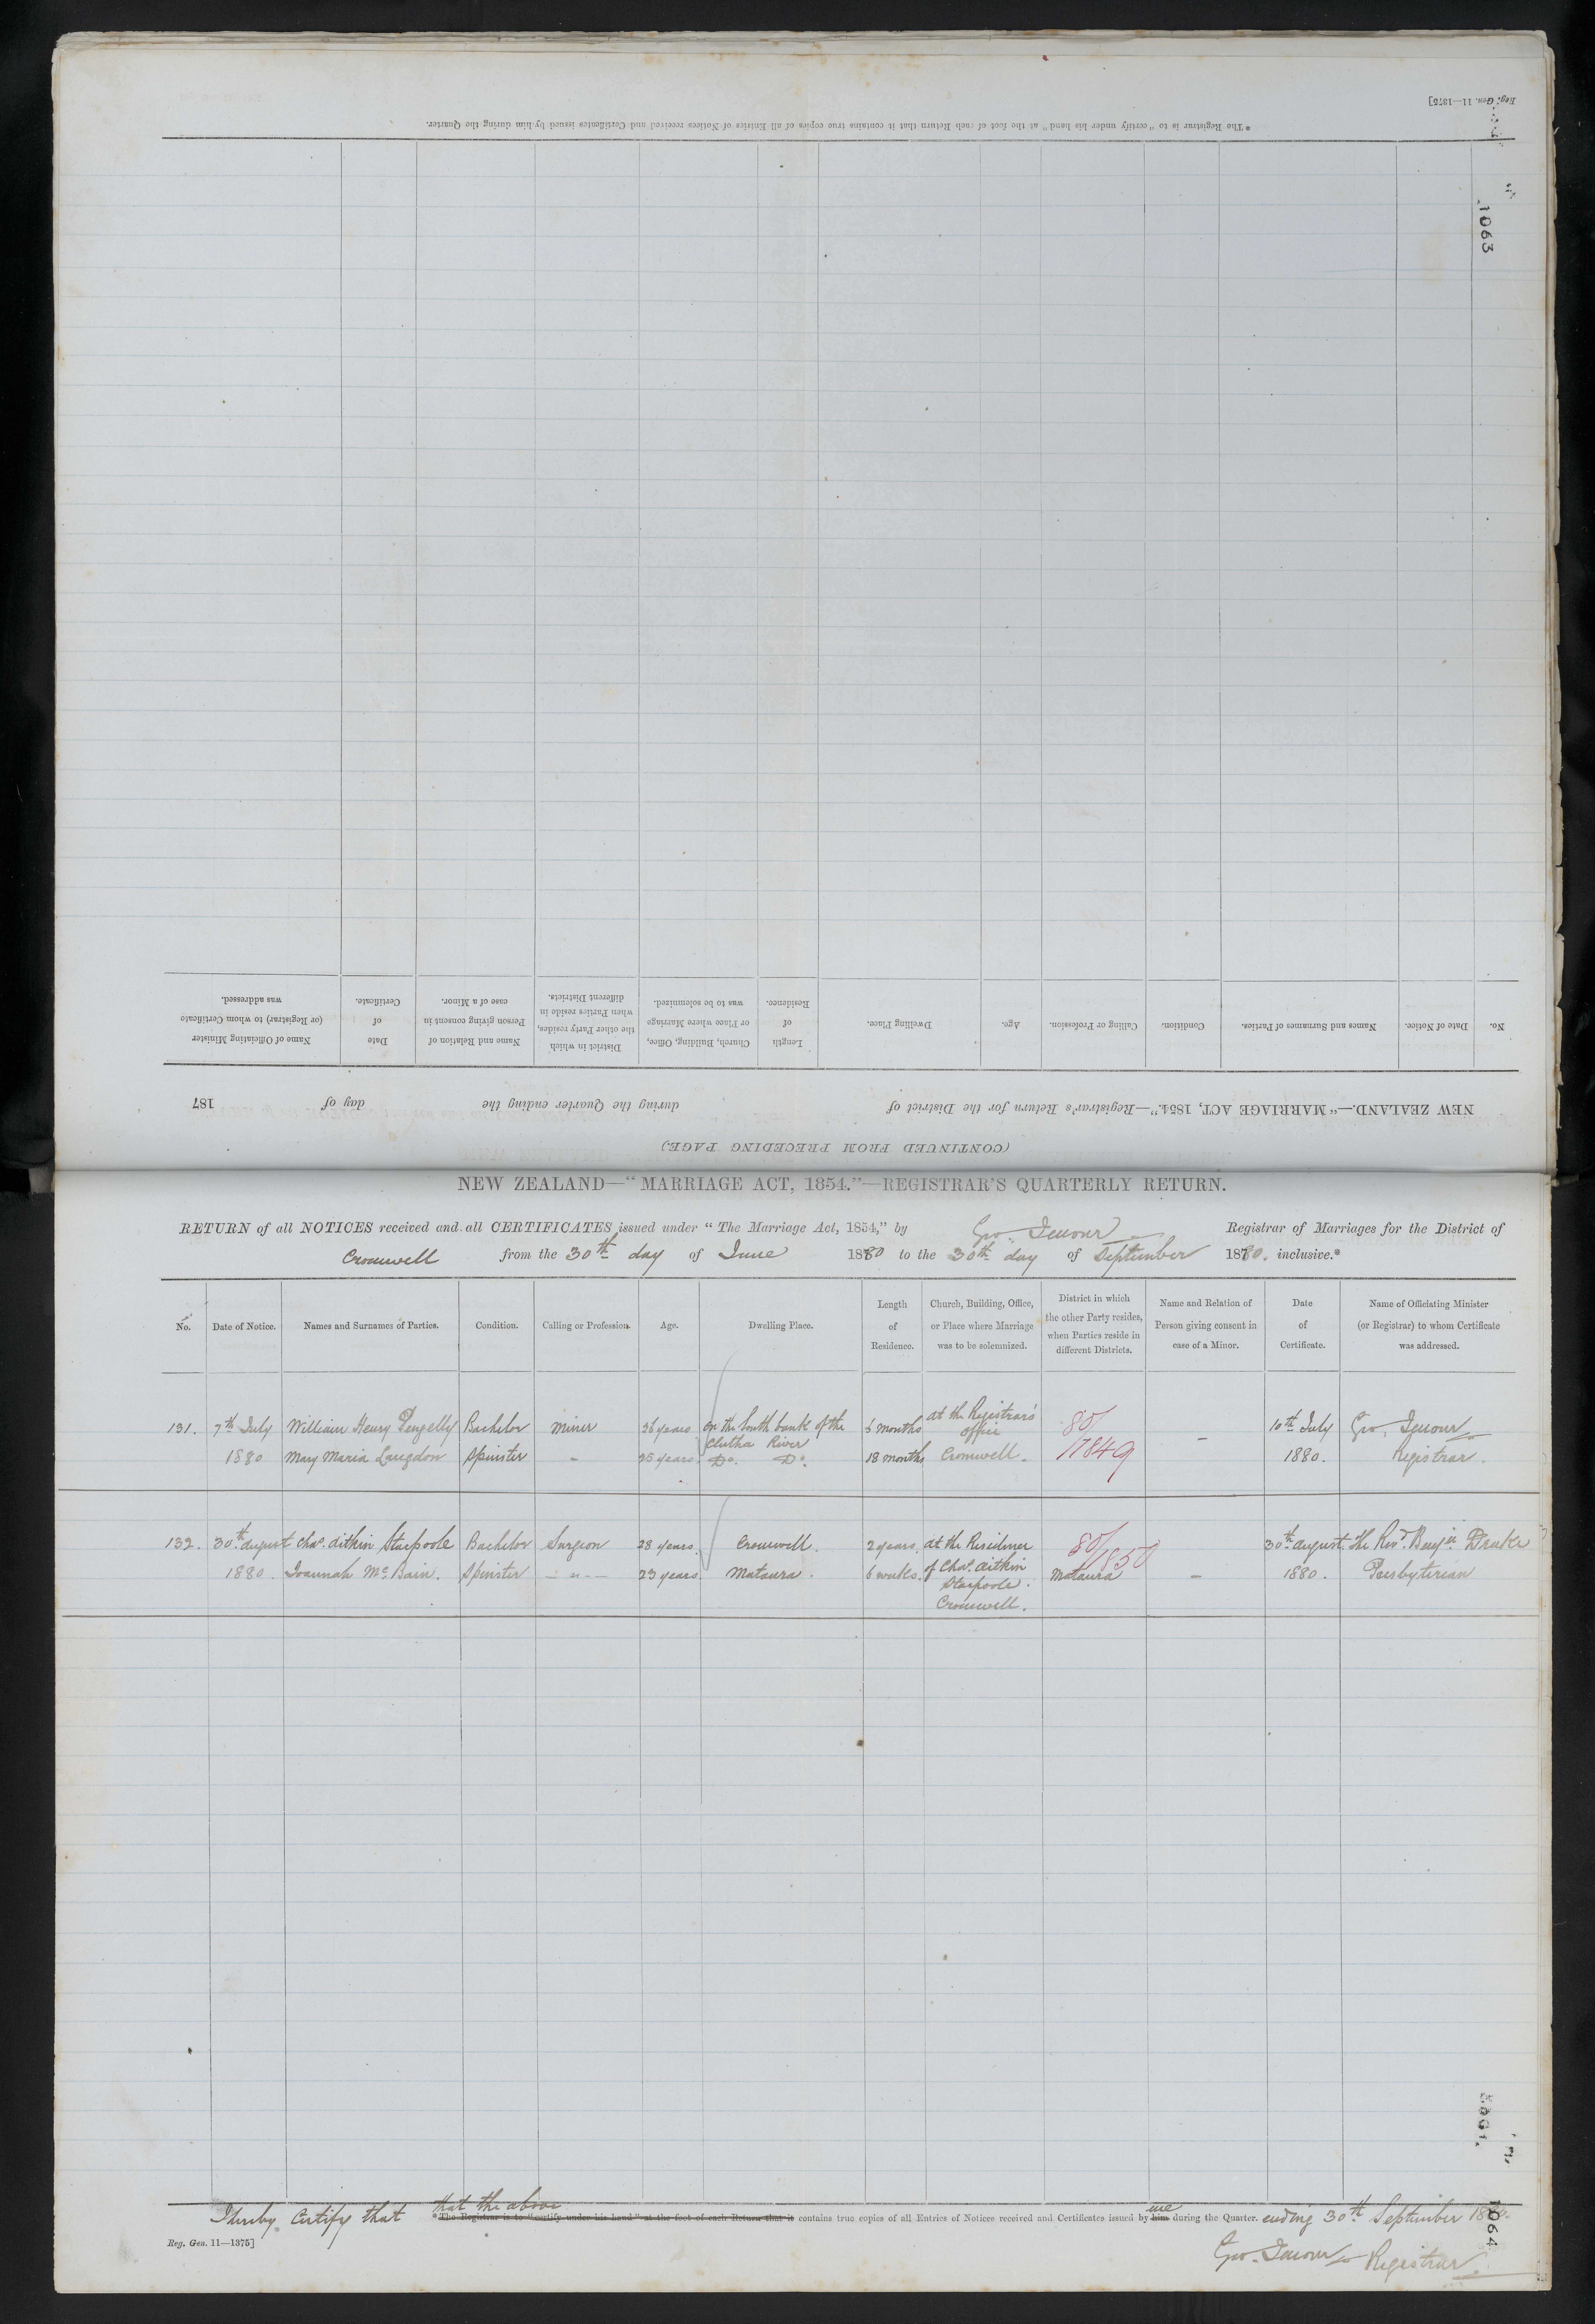 Reg. Gen. 11—1375]
*The Registrar is to "certify under his hand" at the foot of each Return that it contains true copies of all Entries of Notices received and Certificates issued by him during the Quarter.
1063
No. Date of Notice. Names and Surnames of Parties. Condition. Calling or Profession. Age. Dwelling Place. Length of Residence. Church, Building, Office, or Place where Marriage was to be solemnized. District in which the other Party resides, when Parties reside in different Districts. Name and Relation of Person giving consent in case of a Minor. Date of Certificate. Name of Officiating Minister (or Registrar) to whom Certificate was addressed.
NEW ZEALAND.—"MARRIAGE ACT, 1854."—Registrar's Return for the District of during the Quarter ending the day of 187
(CONTINUED FROM PRECEDING PAGE.)
NEW ZEALAND—"MARRIAGE ACT, 1854."—REGISTRAR'S QUARTERLY RETURN.
RETURN of all NOTICES received and all CERTIFICATES issued under "The Marriage Act, 1854," by Geo. Jenour Registrar of Marriages for the District of
Cromwell from the 30th day of June 1880 to the 30th day of September 1880. inclusive.*
No. Date of Notice. Names and Surnames of Parties. Condition. Calling or Profession. Age. Dwelling Place. Length of Residence. Church, Building, Office, or Place where Marriage was to be solemnized. District in which the other Party resides, when Parties reside in different Districts. Name and Relation of Person giving consent in case of a Minor. Date of Certificate. Name of Officiating Minister (or Registrar) to whom Certificate was addressed.
131. 7th July William Henry Pengelly Bachelor Miner 36 years on the South bank of the 6 months at the Registrar's 80/ 10th July Geo. Jenour
Clutha River office
1880 Mary Maria Langdon Spinster - 25 years Do. Do. 18 months Cromwell. 1849 - 1880. Registrar.
132. 30th August Chas. Aitkin Stacpoole Bachelor Surgeon 28 years. Cromwell. 2 years. at the Residence 80/1850 30th August The Revd. Benjn Drake
1880. Joannah McBain. Spinster - " - 23 years Mataura. 6 weeks. of Chas. Aitkin Mataura - 1880. Presbyterian
Stacpoole.
Cromwell.
1063
that the above me
I hereby Certify that *The Registrar is to "certify under his hand" at the foot of each Return that it contains true copies of all Entries of Notices received and Certificates issued by him during the Quarter. ending 30th September 1880.
Reg. Gen. 11—1375]
1064
Geo. Jenour Registrar